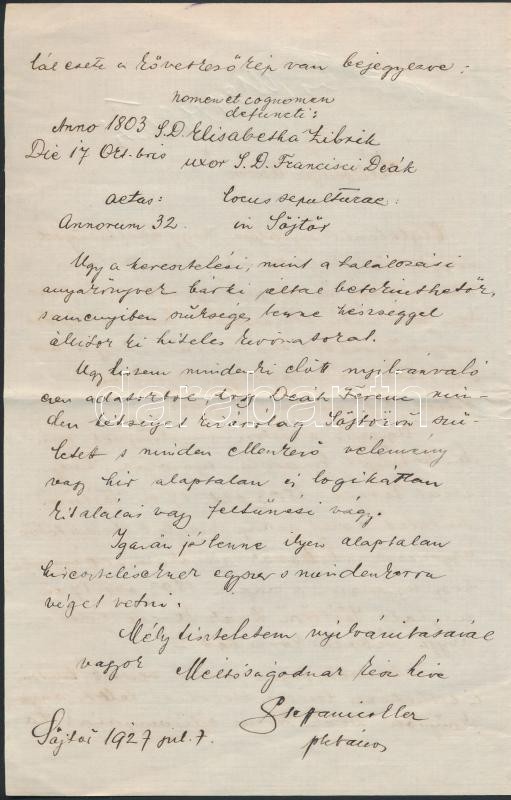 lálesete a következőkép van bejegyezve:
nomen et cognomen
defuncti:
Anno 1803 S.D. Elisabetha Zibrik
Die 17 Oct-bris uxor S.D. Francisci Deák
aetas: locus sepulturae:
Annorum 32. in Söjtör
Ugy a keresztelési, mint a halálozási
anyakönyvek bárki által betekinthetők,
s amennyiben szükséges lenne készséggel
állitok ki hiteles kivonatokat.
Ugy hiszem mindenki előtt nyilvánvaló
ezen adatokból, hogy Deák Ferenc min-
den kétséget kizárólag Söjtörön szü-
letett s minden ellenkező vélemény
vagy hir alaptalan és logikátlan
kitalálás vagy feltünési vágy.
Igazán jó lenne ilyen alaptalan
híreszteléseknek egyszer s mindenkorra
véget vetni.
Mély tiszteletem nyilvánitásával
vagyok Méltóságodnak kész híve
plébános
Söjtör 1927 jul. 7.
darabanth